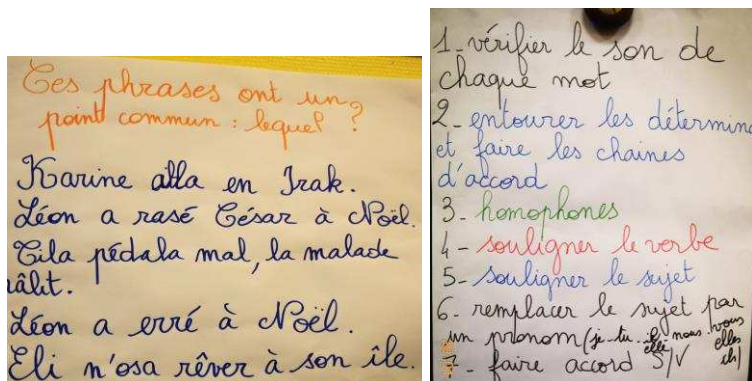 Ces phrases ont un
point commun : lequel ?
Karine alla en Irak.
Léon a rasé César à Noël.
Tila pédala mal, la malade
râlit.
Léon a erré à Noël.
Eli n'osa rêver à son île.
1- vérifier le son de
chaque mot
2- entourer les détermin
et faire les chaines
d'accord
3- homophones
4- souligner le verbe
5- souligner le sujet
6- remplacer le sujet par
un pronom (je.tu..il nous vous
elle elles
7- faire accord S/V